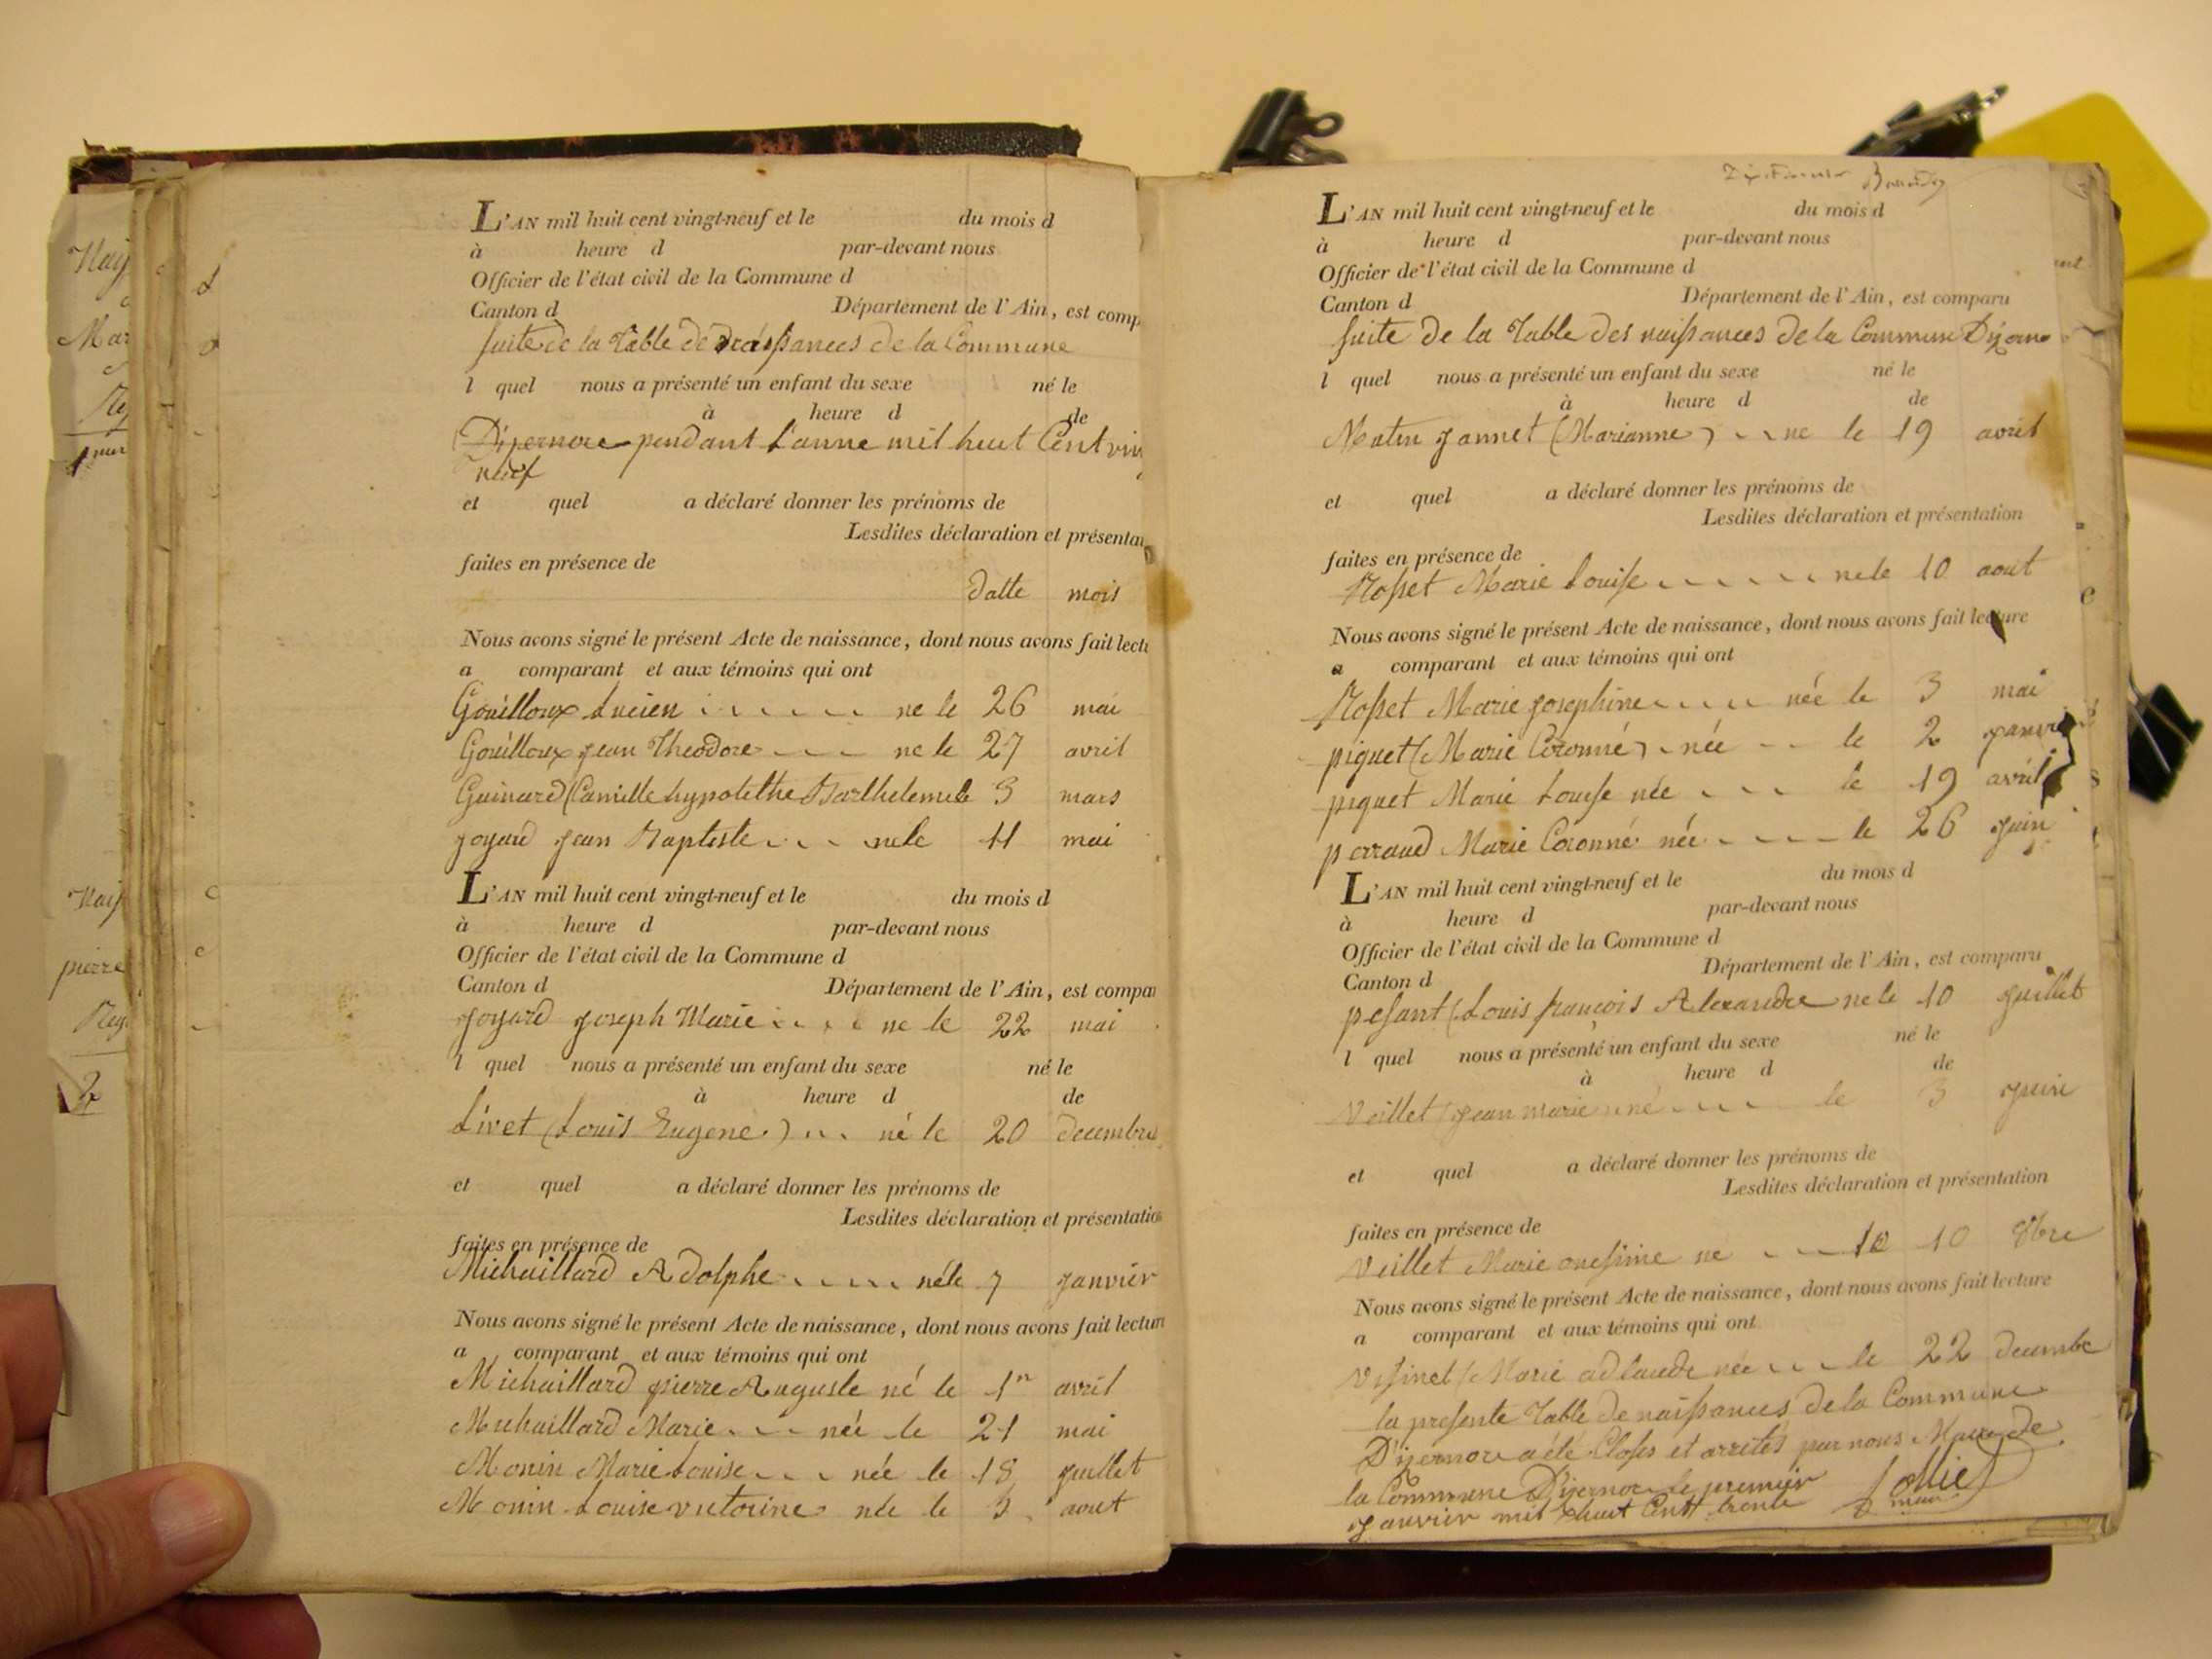 L'AN mil huit cent vingt-neuf et le du mois d
à heure d par-devant nous
Officier de l'état civil de la Commune d
Canton d Département de l'Ain, est comp
suite de la Table de naissances de la Commune
l quel nous a présenté un enfant du sexe né le
à heure d de
Dizernore pendant l'anne mil huit Cent vin
neuf
et quel a déclaré donner les prénoms de
Lesdites déclaration et présentat
faites en présence de
datte mois
Nous avons signé le présent Acte de naissance, dont nous avons fait lectu
a comparant et aux témoins qui ont
Gouilloux Lucien ne le 26 mai
Gouilloux jean Theodore ne le 27 avril
Guinard (Camille hypolithe Barthelemi le 3 mars
joyard jean Baptiste ne le 11 mai
L'AN mil huit cent vingt-neuf et le du mois d
à heure d par-devant nous
Officier de l'état civil de la Commune d
Canton d Département de l'Ain, est compar
joyard joseph Marie ne le 22 mai
l quel nous a présenté un enfant du sexe né le
à heure d de
Livet (Louis Eugene) né le 20 decembre
et quel a déclaré donner les prénoms de
Lesdites déclaration et présentation
faites en présence de
Michaillard Adolphe né le 7 janvier
Nous avons signé le présent Acte de naissance, dont nous avons fait lecture
a comparant et aux témoins qui ont
Michaillard pierre Auguste né le 1er avril
Michaillard Marie née le 21 mai
Monin Marie Louise née le 18 juillet
Monin Louise victorine née le 5 aout
L'AN mil huit cent vingt-neuf et le du mois d
à heure d par-devant nous
Officier de l'état civil de la Commune d
Canton d Département de l'Ain, est comparu
suite de la Table des naissances de la Commune Dizerno
l quel nous a présenté un enfant du sexe né le
à heure d de
Matin jannet (Marianne) ne le 19 avril
et quel a déclaré donner les prénoms de
Lesdites déclaration et présentation
faites en présence de
Rosset Marie Louise ne le 10 aout
Nous avons signé le présent Acte de naissance, dont nous avons fait lecture
a comparant et aux témoins qui ont
Rosset Marie josephine née le 3 mai
piquet (Marie Coronné) née le 2 janvie
piquet Marie Louise née le 19 avril
perraud Marie Coronné née le 26 juin
L'AN mil huit cent vingt-neuf et le du mois d
à heure d par-devant nous
Officier de l'état civil de la Commune d
Canton d Département de l'Ain, est comparu
pesant (Louis françois Alexandre ne le 10 juillet
l quel nous a présenté un enfant du sexe né le
à heure d de
Veillet (jean marie) né le 3 juin
et quel a déclaré donner les prénoms de
Lesdites déclaration et présentation
faites en présence de
Veillet Marie onesime ne le 10 8bre
Nous avons signé le présent Acte de naissance, dont nous avons fait lecture
a comparant et aux témoins qui ont
Vissinel (Marie adlaude née le 22 decembe
la presente Table de naissances de la Commune
Dizernore a été Closes et arrités par nous Maire de
la Commune Dizernore le premier
janvier mil huit Cent trente
maire